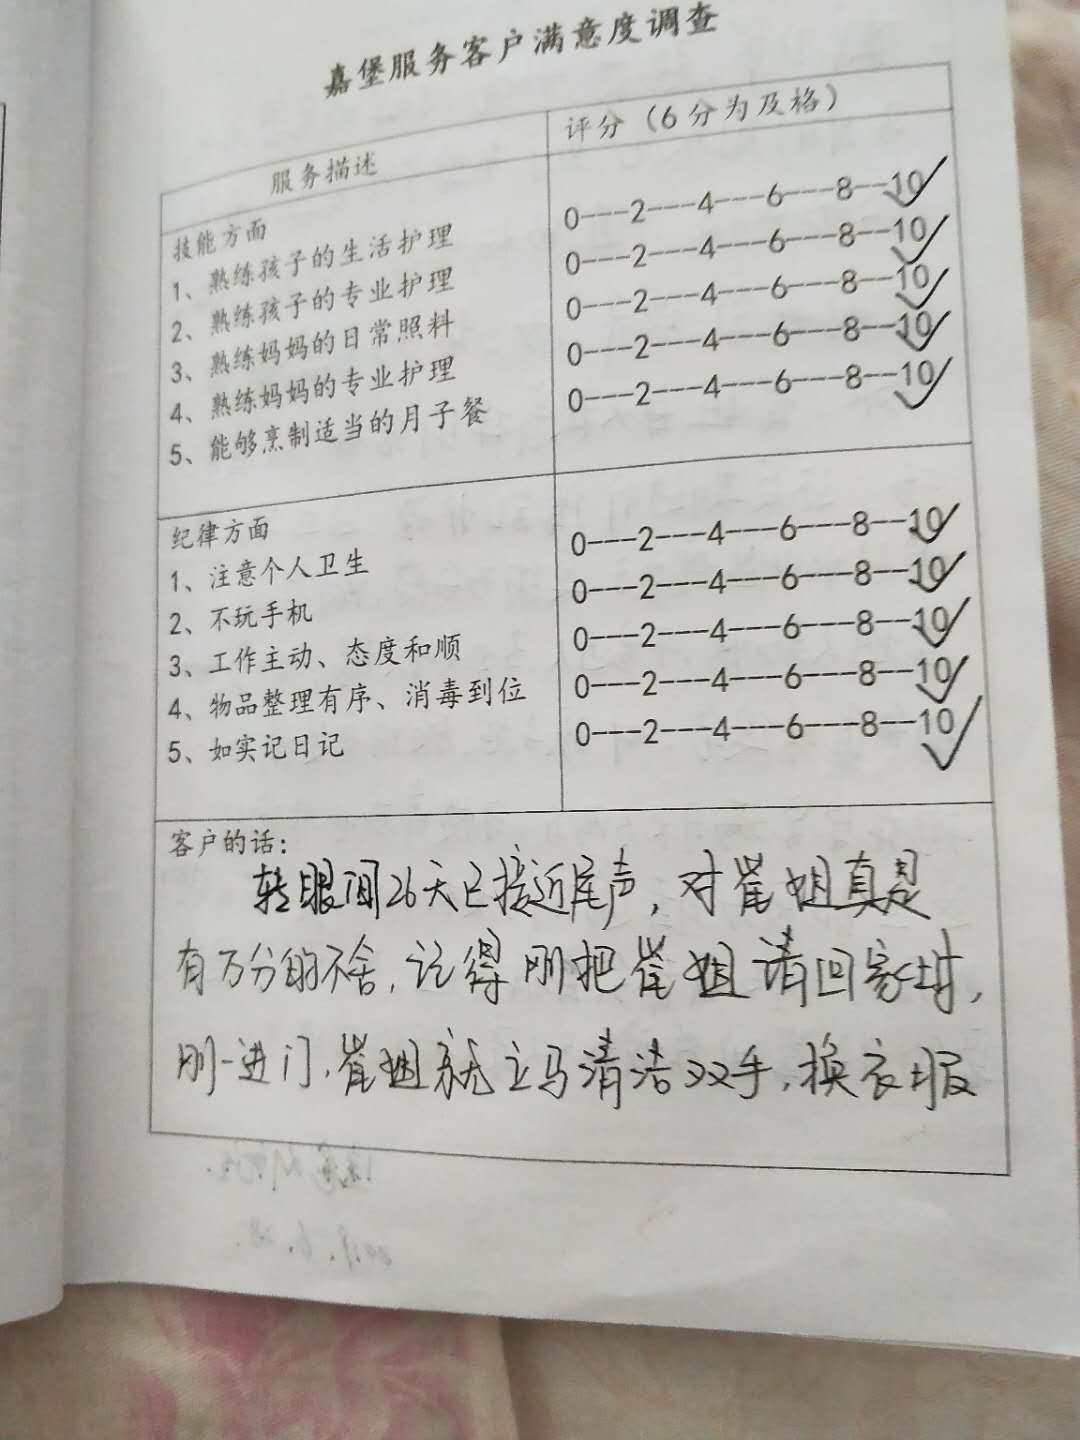 嘉堡服务客户满意度调查
服务描述
评分（6分为及格）
技能方面
1、熟练孩子的生活护理
2、熟练孩子的专业护理
3、熟练妈妈的日常照料
4、熟练妈妈的专业护理
5、能够烹制适当的月子餐
0---2---4---6---8--10
0---2---4---6---8--10
0---2---4---6---8--10
0---2---4---6---8--10
0---2---4---6---8--10
纪律方面
1、注意个人卫生
2、不玩手机
3、工作主动、态度和顺
4、物品整理有序、消毒到位
5、如实记日记
0---2---4---6---8--10
0---2---4---6---8--10
0---2---4---6---8--10
0---2---4---6---8--10
0---2---4---6---8--10
客户的话：
转眼间26天已接近尾声，对崔姐真是
有万分的不舍，记得刚把崔姐请回家时，
刚一进门，崔姐就立马清洁双手，换衣服